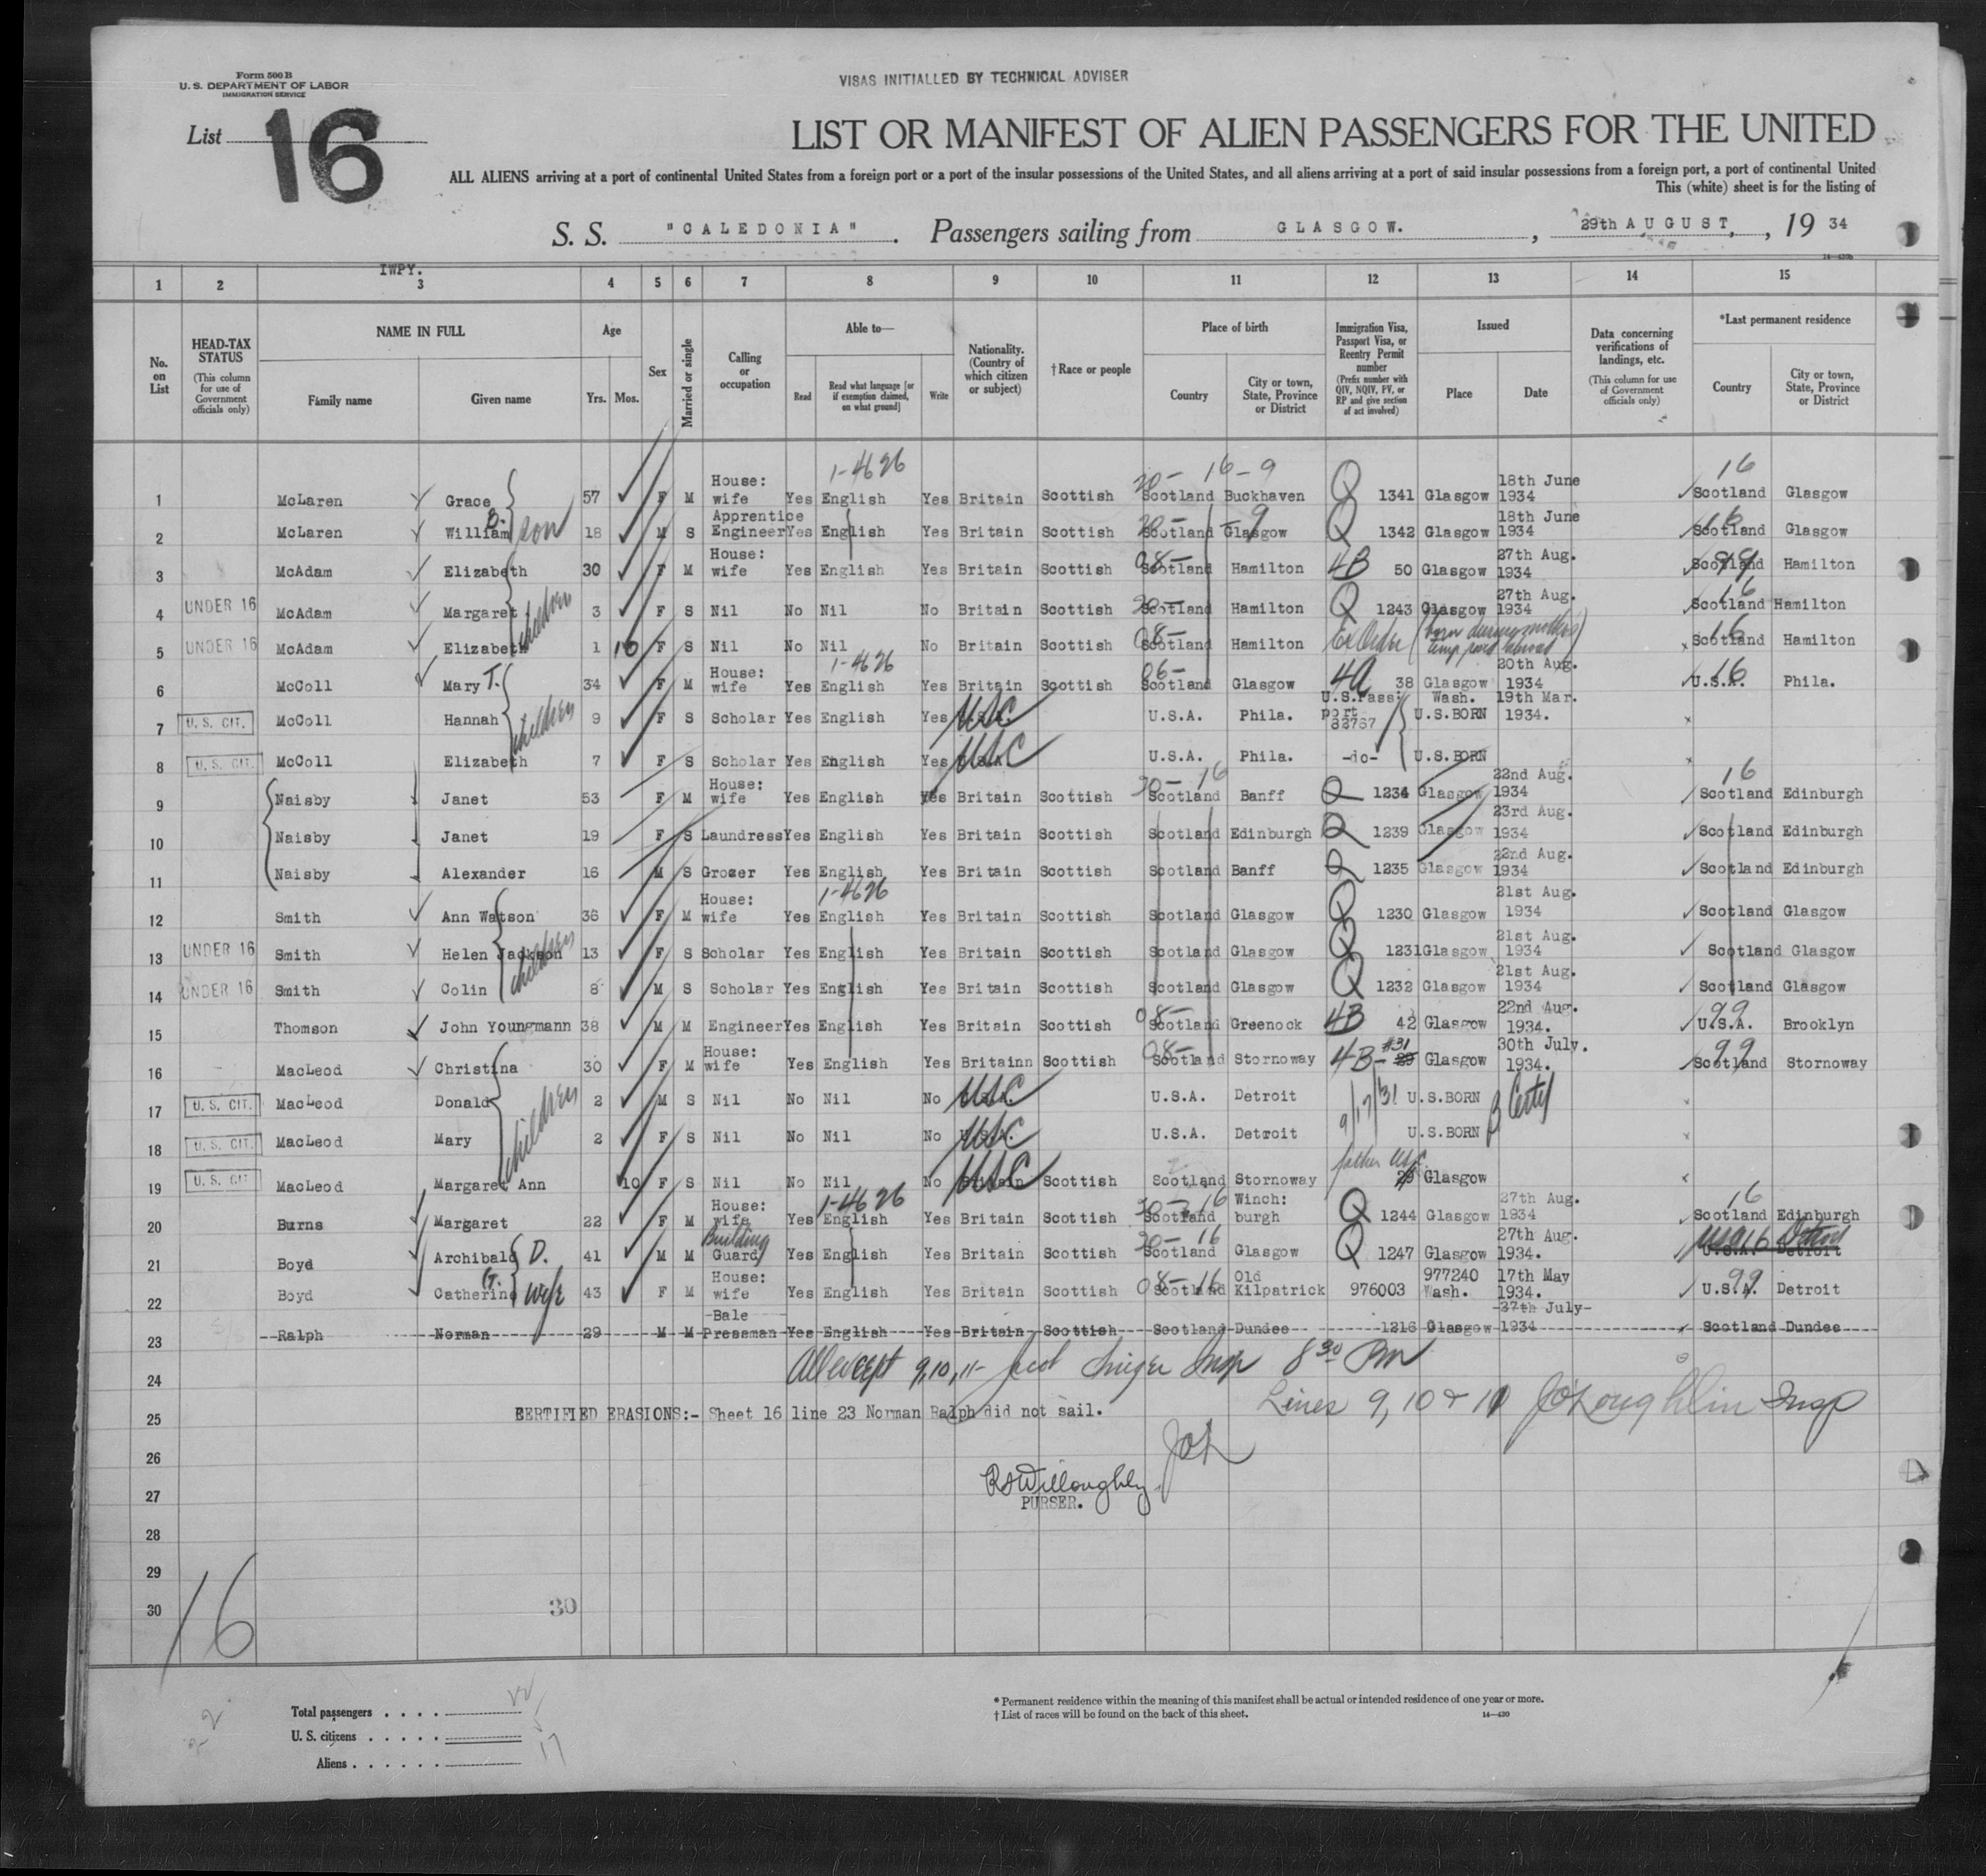 Form 500 B
U. S. DEPARTMENT OF LABOR
IMMIGRATION SERVICE
VISAS INITIALLED BY TECHNICAL ADVISER
List 16
LIST OR MANIFEST OF ALIEN PASSENGERS FOR THE UNITED
ALL ALIENS arriving at a port of continental United States from a foreign port or a port of the insular possessions of the United States, and all aliens arriving at a port of said insular possessions from a foreign port, a port of continental United
This (white) sheet is for the listing of
S. S. "CALEDONIA". Passengers sailing from GLASGOW., 29th AUGUST, , 19 34
14—430b
IWPY.
1 2 3 4 5 6 7 8 9 10 11 12 13 14 15
No. on List
HEAD-TAX STATUS (This column for use of Government officials only)
NAME IN FULL
Family name Given name
Age
Yrs. Mos.
Sex
Married or single
Calling or occupation
Able to—
Read Read what language [or if exemption claimed, on what ground] Write
Nationality. (Country of which citizen or subject)
†Race or people
Place of birth
Country City or town, State, Province or District
Immigration Visa, Passport Visa, or Reentry Permit number (Prefix number with QIV, NQIV, PV, or RP and give section of act involved)
Issued
Place Date
Data concerning verifications of landings, etc. (This column for use of Government officials only)
*Last permanent residence
Country City or town, State, Province or District
1-4626 20- 16-9 16
1 McLaren Grace 57 F M House: wife Yes English Yes Britain Scottish Scotland Buckhaven Q 1341 Glasgow 18th June 1934 Scotland Glasgow
2 McLaren William B. son 18 M S Apprentice Engineer Yes English Yes Britain Scottish 20- Scotland -9 Glasgow Q 1342 Glasgow 18th June 1934 16 Scotland Glasgow
3 McAdam Elizabeth 30 F M House: wife Yes English Yes Britain Scottish 08- Scotland Hamilton 4B 50 Glasgow 27th Aug. 1934 99 Scotland Hamilton
4 UNDER 16 McAdam Margaret children 3 F S Nil No Nil No Britain Scottish 20- Scotland Hamilton Q 1243 Glasgow 27th Aug. 1934 16 Scotland Hamilton
5 UNDER 16 McAdam Elizabeth 1 10 F S Nil No Nil No Britain Scottish 08- Scotland Hamilton Ex Order (born during mothers temp visit abroad) 16 Scotland Hamilton
1-4626
6 McColl Mary T. 34 F M House: wife Yes English Yes Britain Scottish 06- Scotland Glasgow 4A 38 Glasgow 20th Aug. 1934 16 U.S.A. Phila.
7 U. S. CIT. McColl Hannah children 9 F S Scholar Yes English Yes USC U.S.A. Phila. U.S.Pass: port 83787 Wash. U.S.BORN 19th Mar. 1934.
8 U. S. CIT. McColl Elizabeth 7 F S Scholar Yes English Yes USC U.S.A. Phila. -do- U.S.BORN
9 Naisby Janet 53 F M House: wife Yes English Yes Britain Scottish 20- 16 Scotland Banff Q 1234 Glasgow 22nd Aug. 1934 16 Scotland Edinburgh
10 Naisby Janet 19 F S Laundress Yes English Yes Britain Scottish Scotland Edinburgh Q 1239 Glasgow 23rd Aug. 1934 Scotland Edinburgh
11 Naisby Alexander 16 M S Grocer Yes English Yes Britain Scottish Scotland Banff Q 1235 Glasgow 22nd Aug. 1934 Scotland Edinburgh
1-4626
12 Smith Ann Watson 36 F M House: wife Yes English Yes Britain Scottish Scotland Glasgow Q 1230 Glasgow 21st Aug. 1934 Scotland Glasgow
13 UNDER 16 Smith Helen Jackson children 13 F S Scholar Yes English Yes Britain Scottish Scotland Glasgow Q 1231 Glasgow 21st Aug. 1934 Scotland Glasgow
14 UNDER 16 Smith Colin 8 M S Scholar Yes English Yes Britain Scottish Scotland Glasgow Q 1232 Glasgow 21st Aug. 1934 Scotland Glasgow
15 Thomson John Youngmann 38 M M Engineer Yes English Yes Britain Scottish 08- Scotland Greenock 4B 42 Glasgow 22nd Aug. 1934. 99 U.S.A. Brooklyn
16 MacLeod Christina 30 F M House: wife Yes English Yes Britainn Scottish 08- Scotland Stornoway 4B- #31 29 Glasgow 30th July. 1934. 99 Scotland Stornoway
17 U. S. CIT. MacLeod Donald children 2 M S Nil No Nil No USC U.S.A. Detroit 9/17/31 U.S.BORN B Certif
18 U. S. CIT. MacLeod Mary 2 F S Nil No Nil No USC U.S.A. Detroit U.S.BORN
19 U. S. CIT MacLeod Margaret Ann 10 F S Nil No Nil No USC Britain Scottish Scotland Stornoway father USC 29 Glasgow
1-4626
20 Burns Margaret 22 F M House: wife Yes English Yes Britain Scottish 20- 16 Scotland Winch: burgh Q 1244 Glasgow 27th Aug. 1934 16 Scotland Edinburgh
21 Boyd Archibald D. 41 M M Building Guard Yes English Yes Britain Scottish 20- 16 Scotland Glasgow Q 1247 Glasgow 27th Aug. 1934. USA 16 Detroit U.S.A. Detroit
22 Boyd Catherine G. wife 43 F M House: wife Yes English Yes Britain Scottish 08-16 Scotland Old Kilpatrick 976003 977240 Wash. 17th May 1934. 99 U.S.A. Detroit
23 Ralph Norman 29 M M Bale Pressman Yes English Yes Britain Scottish Scotland Dundee 1216 Glasgow 27th July 1934 Scotland Dundee
24 All except 9, 10, 11- Insp 8 30 PM
Lines 9, 10 & 11 JO'Loughlin Insp
25 CERTIFIED ERASIONS:- Sheet 16 line 23 Norman Ralph did not sail.
26 JOL
27 RSWilloughby.
PURSER.
28
29
30
30
16
Total passengers . . . . 22
U. S. citizens . . . . . 5
Aliens . . . . . . 17
22
* Permanent residence within the meaning of this manifest shall be actual or intended residence of one year or more.
† List of races will be found on the back of this sheet.
14—430